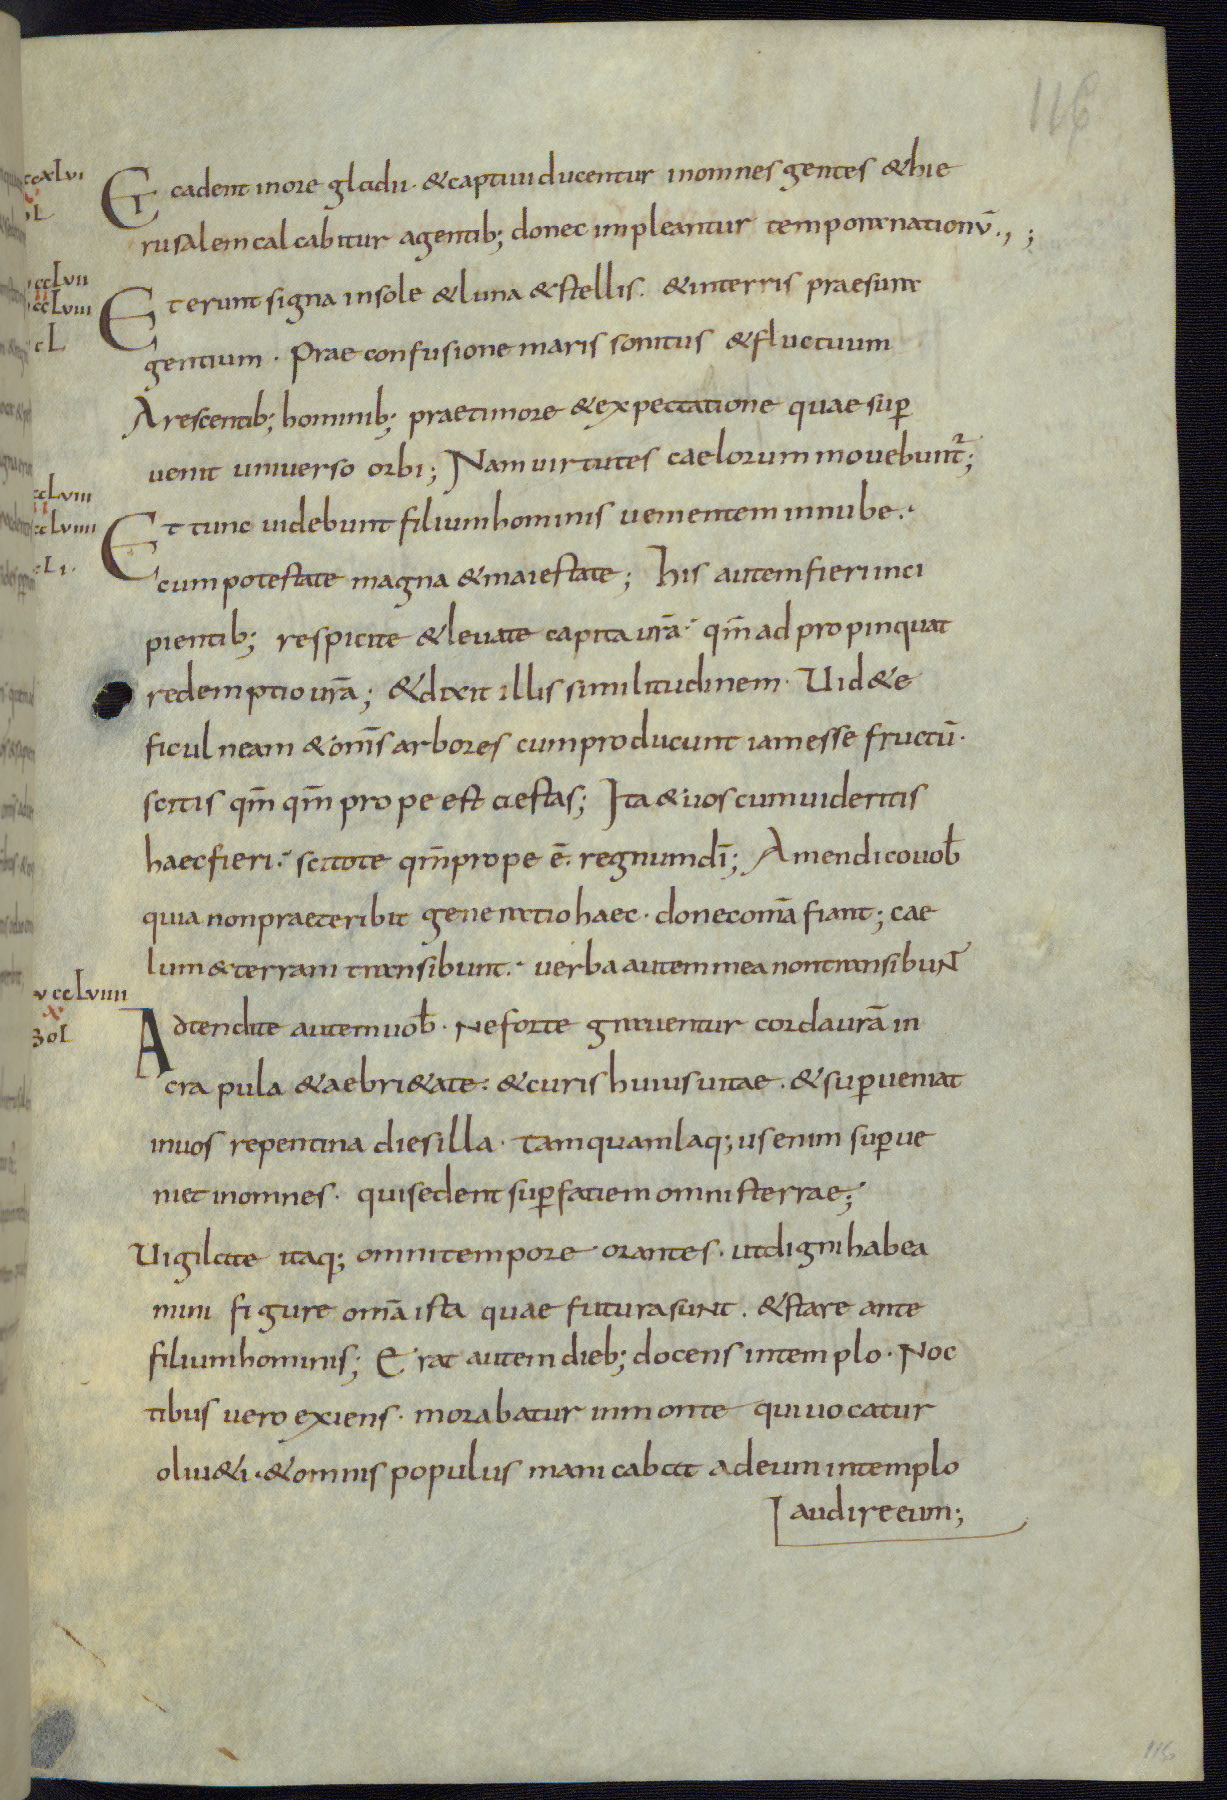 116
ccxLvi
Et cadent inore gladii · &captiui ducentur inomnes gentes &hie
oL
rusalem calcabitur agentib; donec impleantur tempora nationū.,;
ccLvii
Et erunt signa insole &luna &stellis. &interris praesura
ccLviii
cL
gentium · Prae confusione maris sonitus &fluctuum
Arescentib; hominib; praetimore &expectatione quae sup
uenit uniuerso orbi; Nam uirtutes caelorum mouebunt̄;
ccLviii
ccLviiii
Et tunc uidebunt filium hominis uenientem innube.·
cLi·
cum potestate magna &maiestate; his autem fieri inci
pientib; respicite &leuate capita urā· qm̄ ad propinquat
redemptio urā; &dixit illis similitudinem· Uid&e
ficulneam &om̄s arbores cum producunt iam esse fructū·
scitis qm̄ qm̄ prope est aestas; Ita &uos cum uideritis
haec fieri·· scitote qm̄ prope ē· regnum dī; Amen dico uob̄
quia non praeteribit generatio haec · donec om̄a fiant; cae
lum &terram transibunt.· uerba autem mea non transibuNT
v ccLviiii
x
3oL
Adtendite autem uob̄ · Ne forte grauentur corda urā in
crapula &aebri&ate: &curis huius uitae · &sup ueniat
inuos repentina dies illa · tamquam laq;us enim sup ue
niet inomnes · qui sedent sup faciem omnis terrae;
Uigilate itaq; omni tempore orantes · ut digni habea
mini figure om̄a ista quae futura suNt · &stare ante
filium hominis; Erat autem dieb; docens intemplo · Noc
tibus uero exiens · morabatur inmonte qui uocatur
oliu&i·&omnis populus manicabat adeum intemplo
audire eum;
116